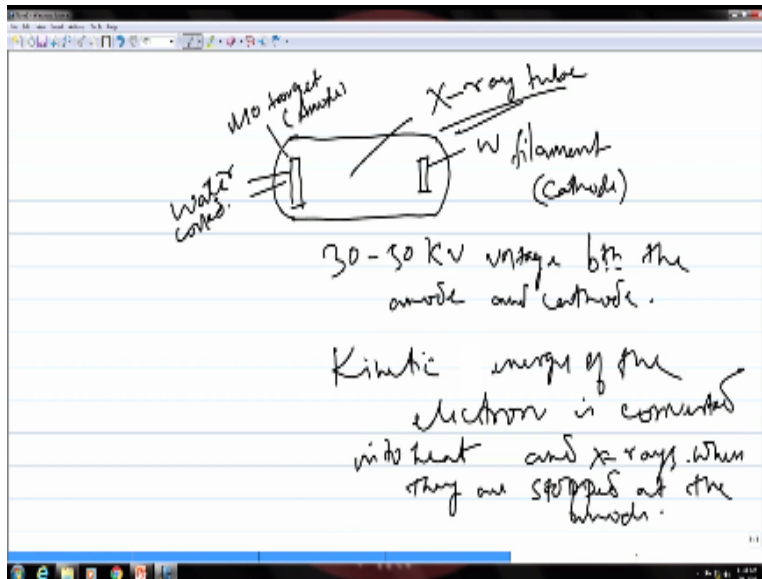 Mo target
(Anode)
X-ray tube
W filament
(Cathode)
Water
cooled.
30-50 KV voltage btn the
anode and cathode.
Kinetic energy of the
electron is converted
into heat and x-rays. when
they are stopped at the
anode.